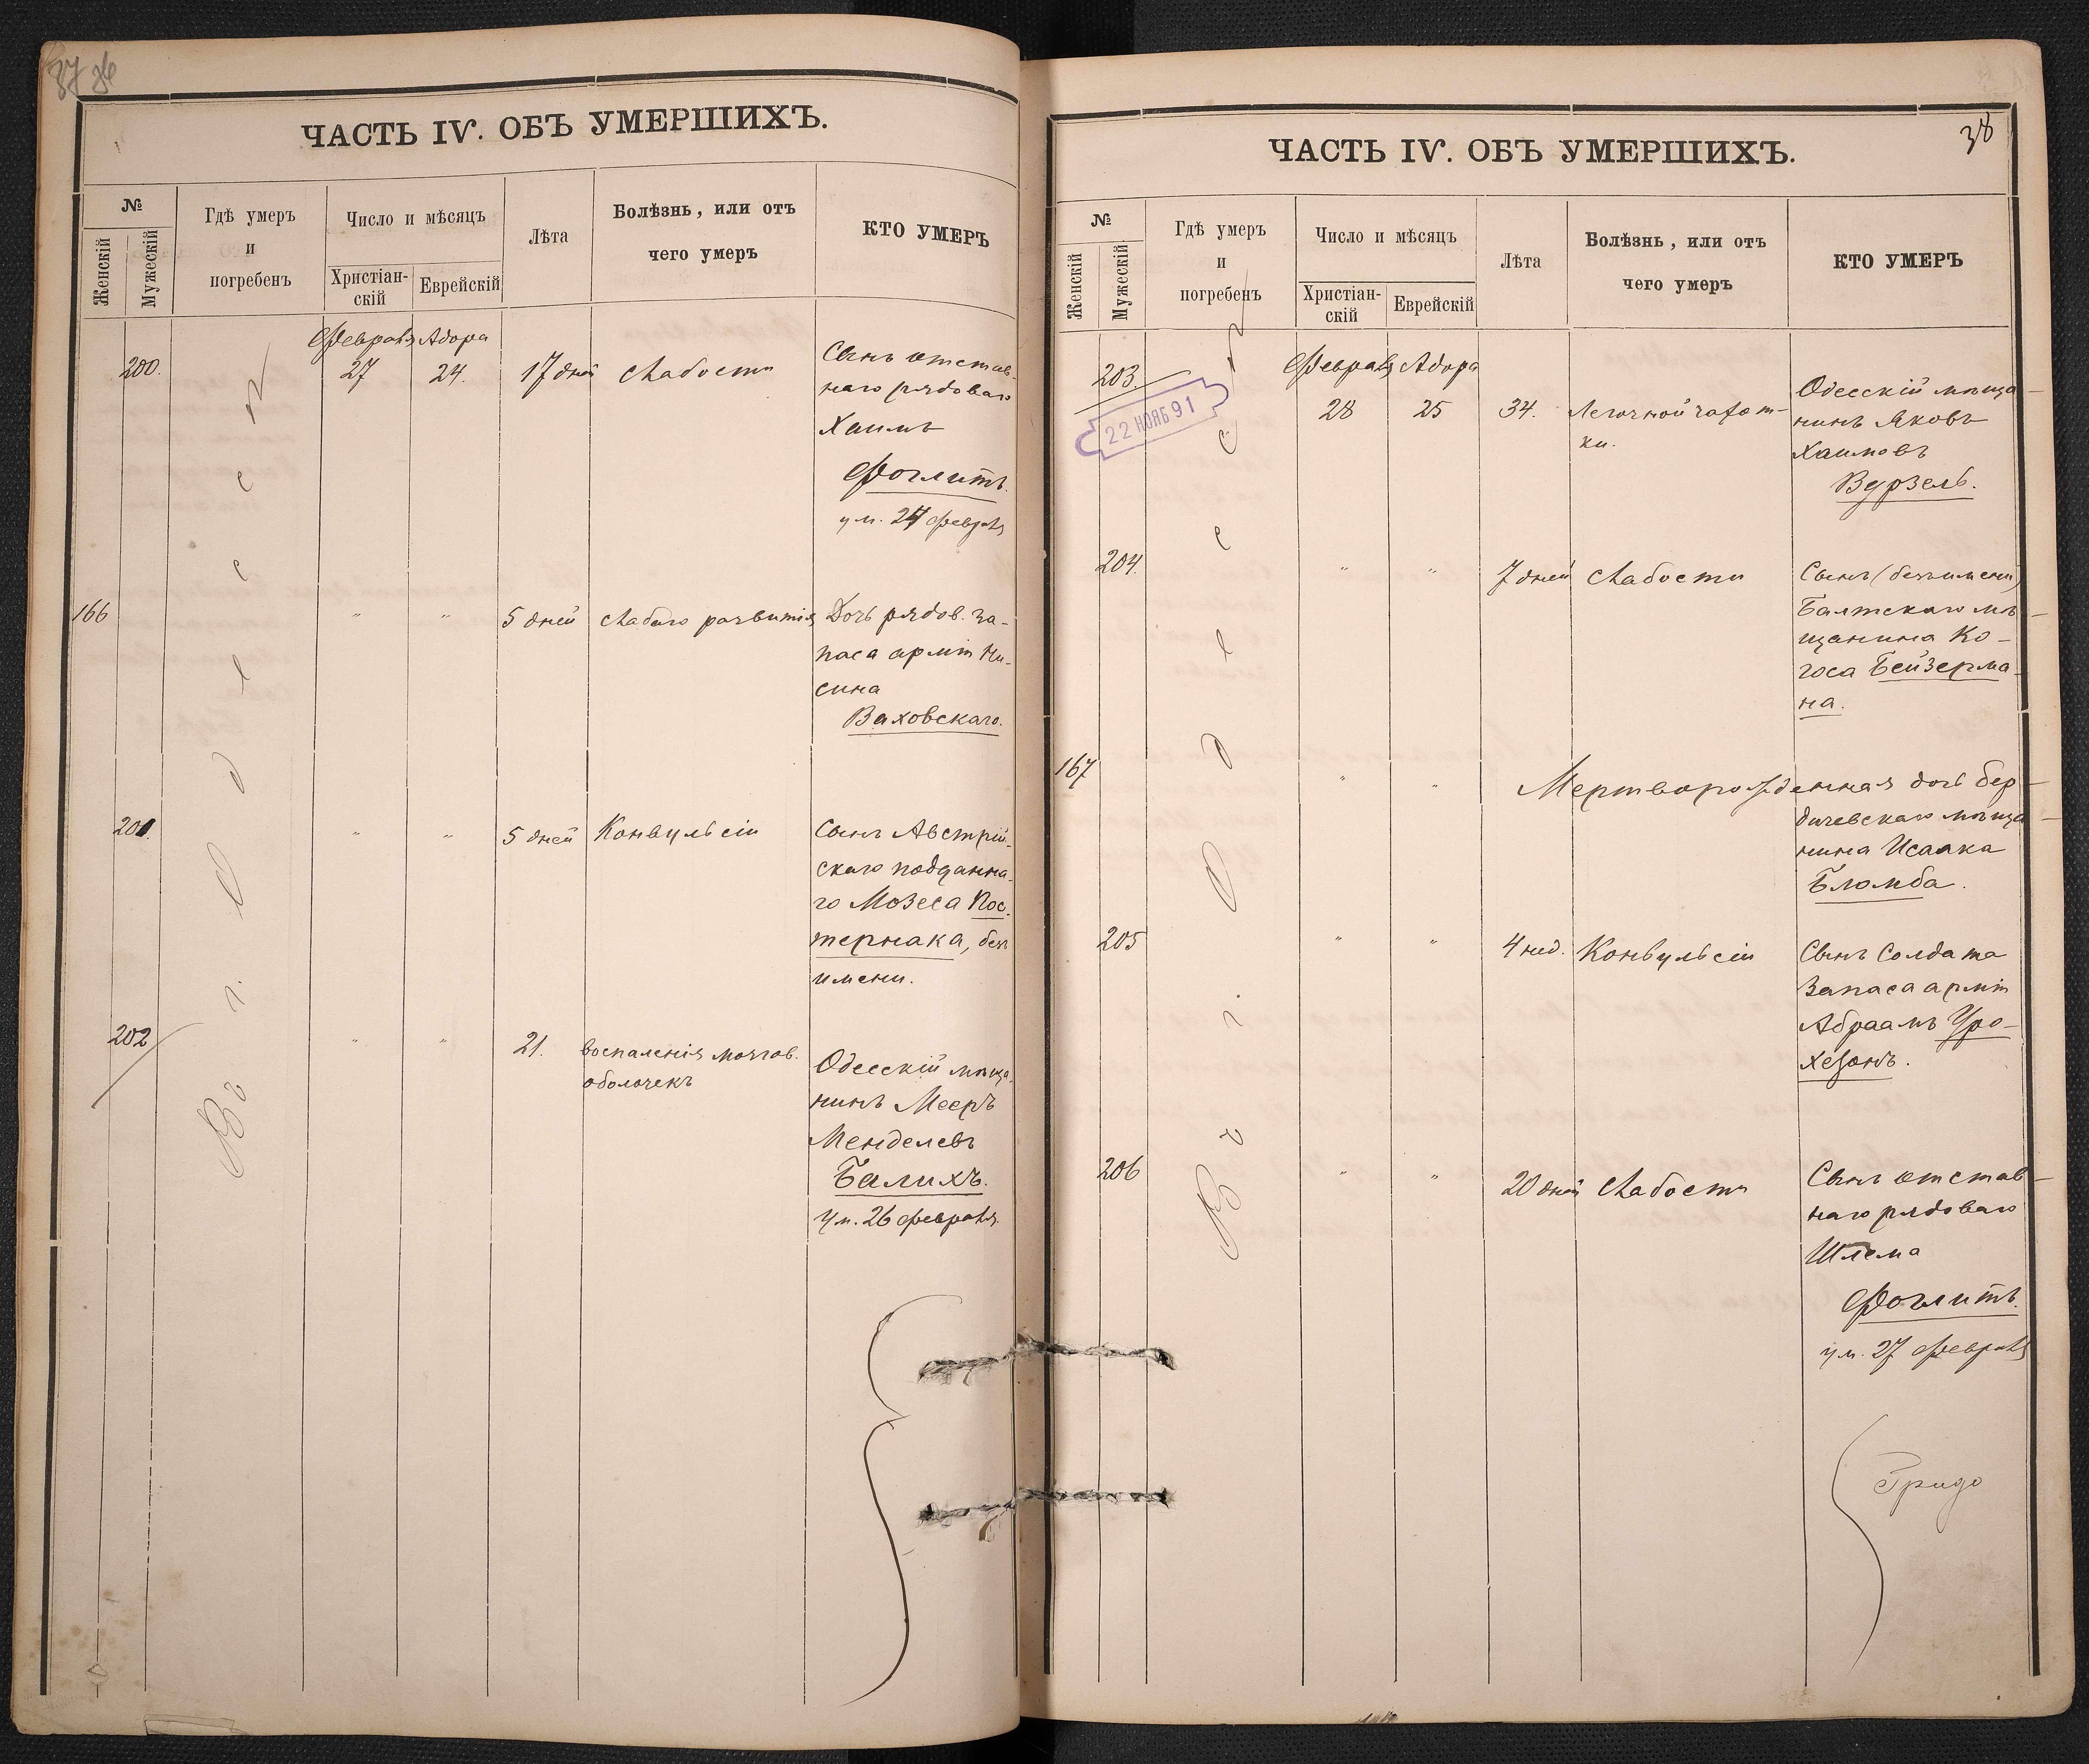 37
ЧАСТЬ IV. ОБЪ УМЕРШИХЪ.
№
Женскій
Мужескій
Гдѣ умеръ
и
погребенъ
Число и мѣсяцъ
Христіан-
скій
Еврейскій
Лѣта
Болѣзнь, или отъ
чего умеръ
КТО УМЕРЪ
Въ г. Одессѣ
Февраля Адора
200. 27 24. 17 дней слабости
Сынъ отстав-
наго рядоваго
Хаимъ
Фоглитъ.
ум. 27 февраля
166 " " 5 дней слабаго развитія
Дочь рядов. за-
паса арміи Ни-
сина
Ваховскаго.
201. " " 5 дней Конвульсіи
Сынъ Австрій-
скаго подданна-
го Мозеса Пос-
тернака, безъ
имени.
202 " " 21. воспаленія мозгов.
оболочекъ
Одесскій мѣща-
нинъ Мееръ
Менделевъ
Балихъ.
Ум. 26 февраля.
38
ЧАСТЬ IV. ОБЪ УМЕРШИХЪ.
№
Женскій
Мужескій
Гдѣ умеръ
и
погребенъ
Число и мѣсяцъ
Христіан-
скій
Еврейскій
Лѣта
Болѣзнь, или отъ
чего умеръ
КТО УМЕРЪ
Въ г. Одессѣ
Февраля Адора
203. 28 25 34. Легочной чахот-
ки.
22 НОЯБ 91
Одесскій мѣща-
нинъ Яковъ
Хаимовъ
Вурзель.
204. " " 7 дней слабости
Сынъ (безъ имени)
Балтскаго мѣ-
щанина Ко-
госа Бейзерма-
на.
167 " " Мертворожденная дочь бер-
дичевскаго мѣща-
нина Исаака
Бломба.
205 " " 4 нед. Конвульсіи
Сынъ Солдата
Запаса арміи
Абраамъ Уро-
206 " " 20 дней слабости
Сынъ отстав-
наго рядоваго
Шлема
Фоглитъ.
ум. 27 февраля